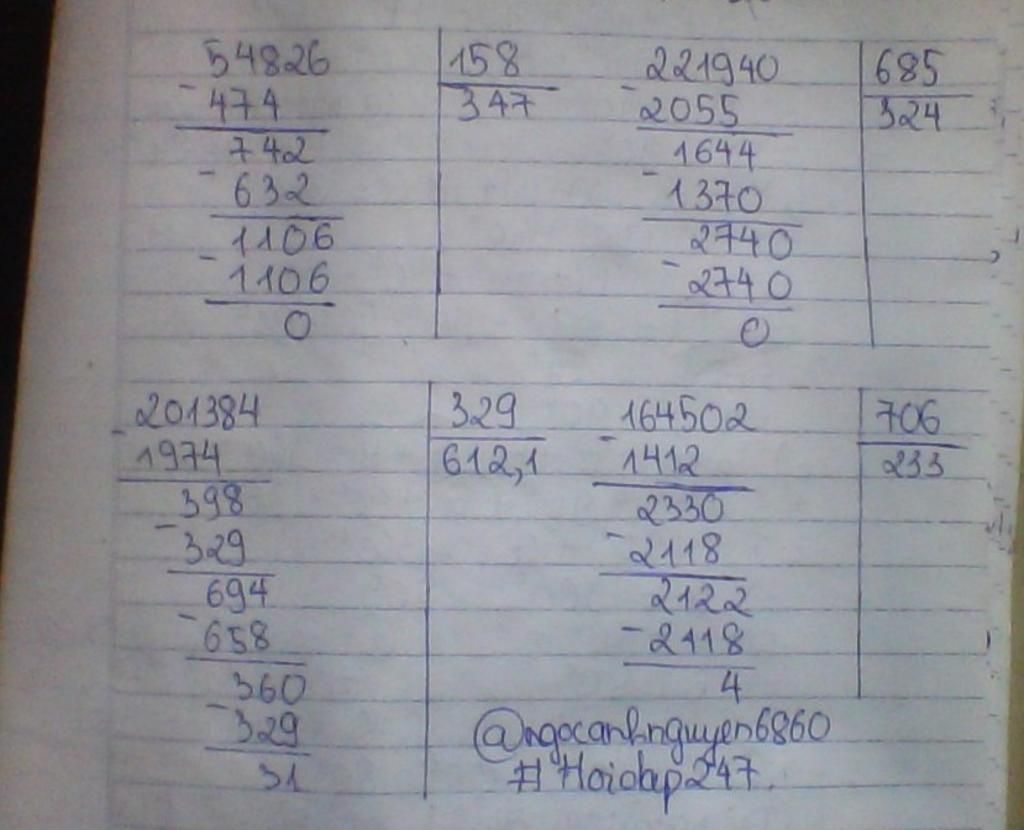 54826 158
- 474 347
742
- 632
1106
- 1106
0
221940 685
- 2055 324
1644
- 1370
2740
- 2740
0
201384 329
- 1974 612,1
398
- 329
694
- 658
360
- 329
31
164502 706
- 1412 233
2330
- 2118
2122
- 2118
4
@ngocanhnguyen6860
#Hoidap247.